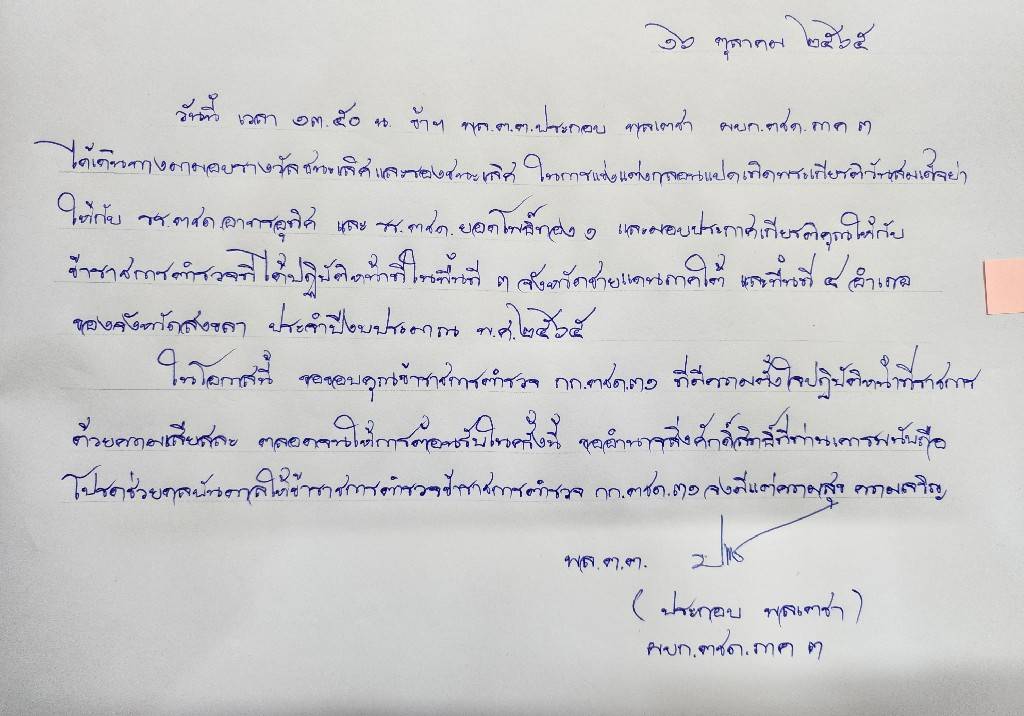 ๑๖ ตุลาคม ๒๕๖๕
วันนี้ เวลา ๑๓.๕๐ น. ข้าฯ พล.ต.ต.ประกอบ พลเดชา ผบก.ตชด.ภาค ๓
ได้เดินทางมามอบรางวัลชนะเลิศและรองชนะเลิศ ในการแข่งแต่งกลอนแปดเทิดพระเกียรติวันสมเด็จย่า
ให้กับ รร.ตชด.อาทรอุทิศ และ รร.ตชด.ยอดโพธิ์ทอง ๑ และมอบประกาศเกียรติคุณให้กับ
ข้าราชการตำรวจที่ได้ปฏิบัติหน้าที่ในพื้นที่ ๓ จังหวัดชายแดนภาคใต้ และพื้นที่ ๔ อำเภอ
ของจังหวัดสงขลา ประจำปีงบประมาณ พ.ศ.๒๕๖๕
ในโอกาสนี้ ขอขอบคุณข้าราชการตำรวจ กก.ตชด.๓๑ ที่มีความตั้งใจปฏิบัติหน้าที่ราชการ
ด้วยความเสียสละ ตลอดจนให้การต้อนรับในครั้งนี้ ขออำนาจสิ่งศักดิ์สิทธิ์ที่ท่านเคารพนับถือ
โปรดช่วยดลบันดาลให้ข้าราชการตำรวจข้าราชการตำรวจ กก.ตชด.๓๑ จงมีแต่ความสุข ความเจริญ
พล.ต.ต.
( ประกอบ พลเดชา )
ผบก.ตชด.ภาค ๓